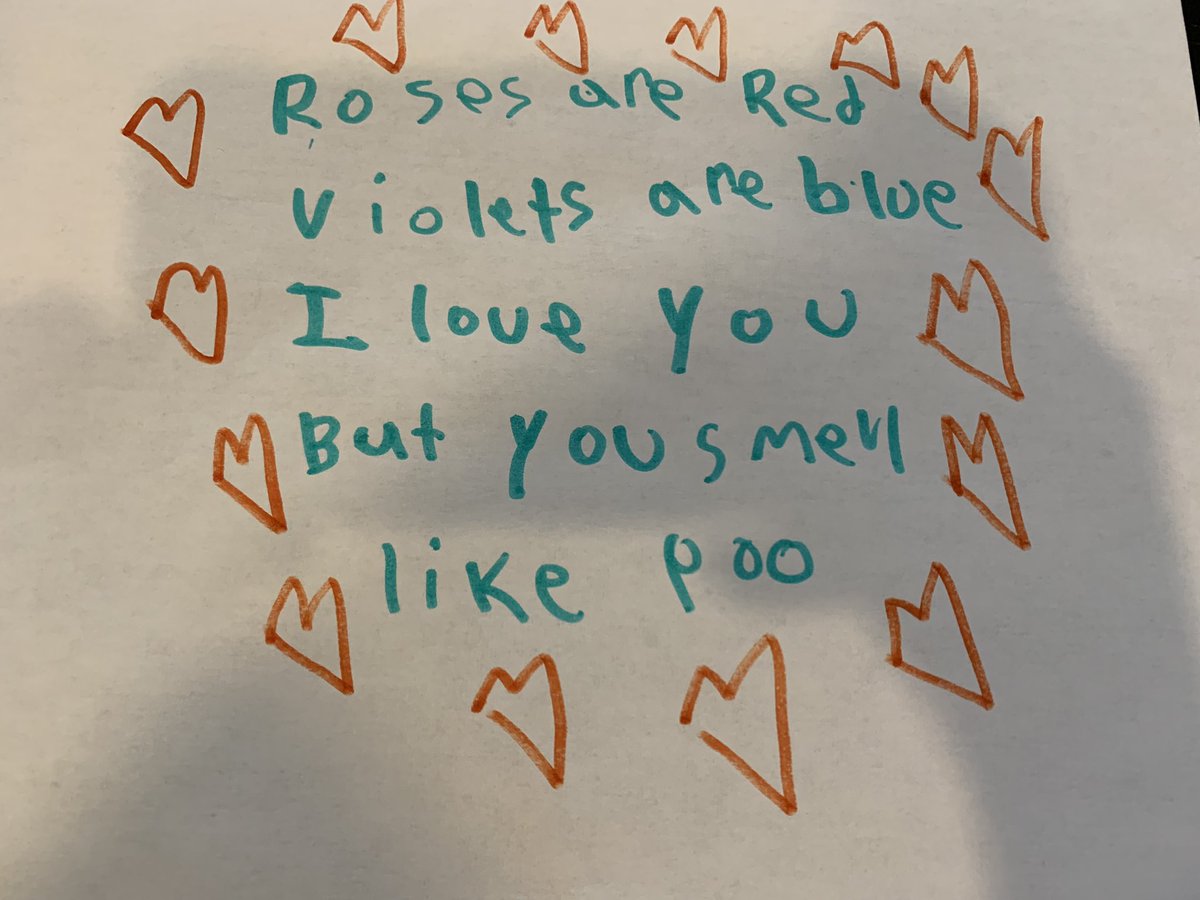 Roses are Red
Violets are blue
I love you
But you smell
like poo